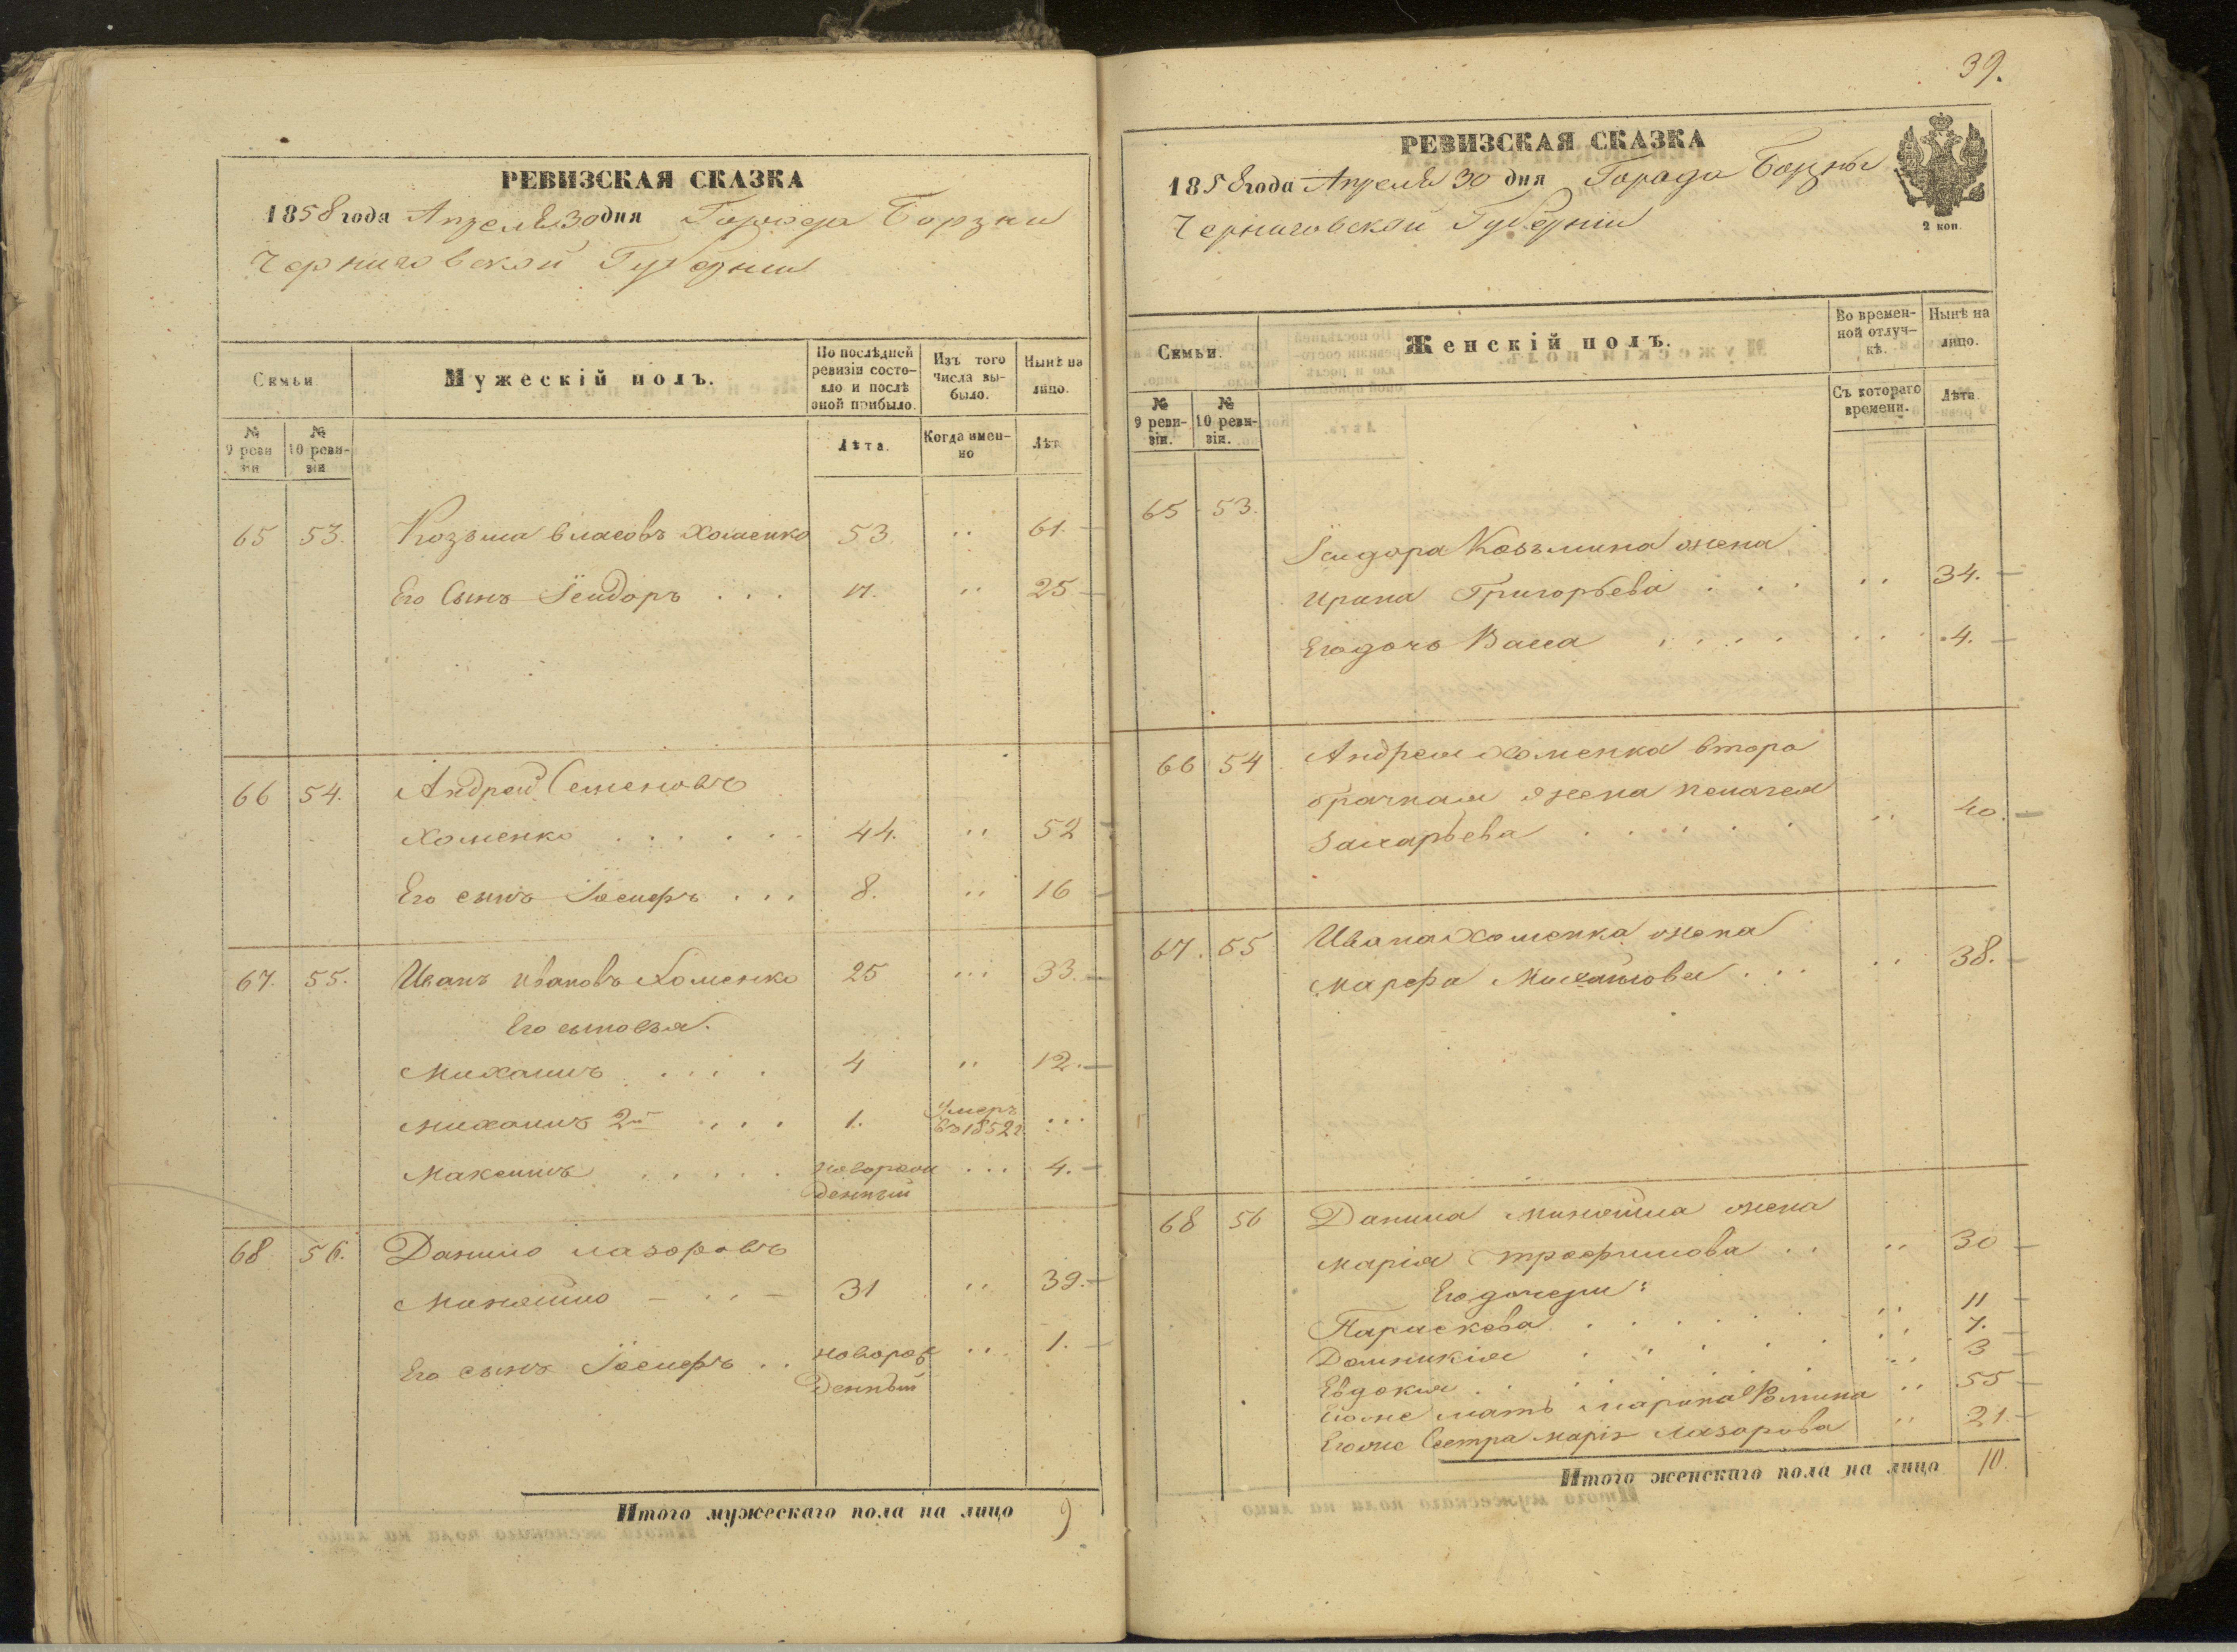 РЕВИЗСКАЯ СКАЗКА
1858 года Апреля 30 дня Города Борзни
Черниговской Губернии
Семьи.
Мужескій полъ.
По послѣдней ревизіи состояло и послѣ оной прибыло.
Изъ того числа выбыло.
Нынѣ на лицо.
№ 9 ревизіи
№ 10 ревизіи
Лѣта.
Когда именно
Лѣта
65 53. Козьма Власовъ Хоменко 53. " 61.
Его Сынъ Ісидоръ . . . 17. " 25
66 54. Андрей Семеновъ
Хоменко . . . . . . 44. " 52
Его сынъ Іосифъ . . . 8. " 16
67. 55. Иванъ Ивановъ Хоменко 25 " 33.
Его сыновья.
Михаилъ . . . . 4 " 12.
Михаилъ 2й . . . . 1. Умеръ въ 1852 г. ...
Максимъ . . . . . новорож
денный ... 4.
68 56. Данило Лазоровъ
31 " 39.
Его сынъ Іосифъ . . новорож
денный " 1.
Итого мужескаго пола на лицо 9
39.
РЕВИЗСКАЯ СКАЗКА
1858 года Апреля 30 дня Города Борзны
Черниговской Губерніи
2 коп.
Семьи.
Женскій полъ.
Во временной отлучкѣ.
Нынѣ на лицо.
№ 9 ревизіи.
№ 10 ревизіи.
Съ котораго времени.
Лѣта
65 53.
Ісидора Козьмина жена
Ирина Григорьева . . . " 34.
Его дочь Васса . . . . " 4.
66 54 Андрея Хоменка второ
брачная жена Пелагея
Захарьева . . . . . " 40.
67. 55 Ивана Хоменка жена
Марфа Михайлова . . . " 38.
68 56 Данила жена
Марія Трофимова . . " 30
Его дочери:
Параскева . . . . . " 11
Домникія . . . . . " 7.
Евдокия . . . . . " 3
Его же мать Марина Фомина " 55
Его же Сестра Марія Лазорова " 21.
Итого женскаго пола на лицо 10.